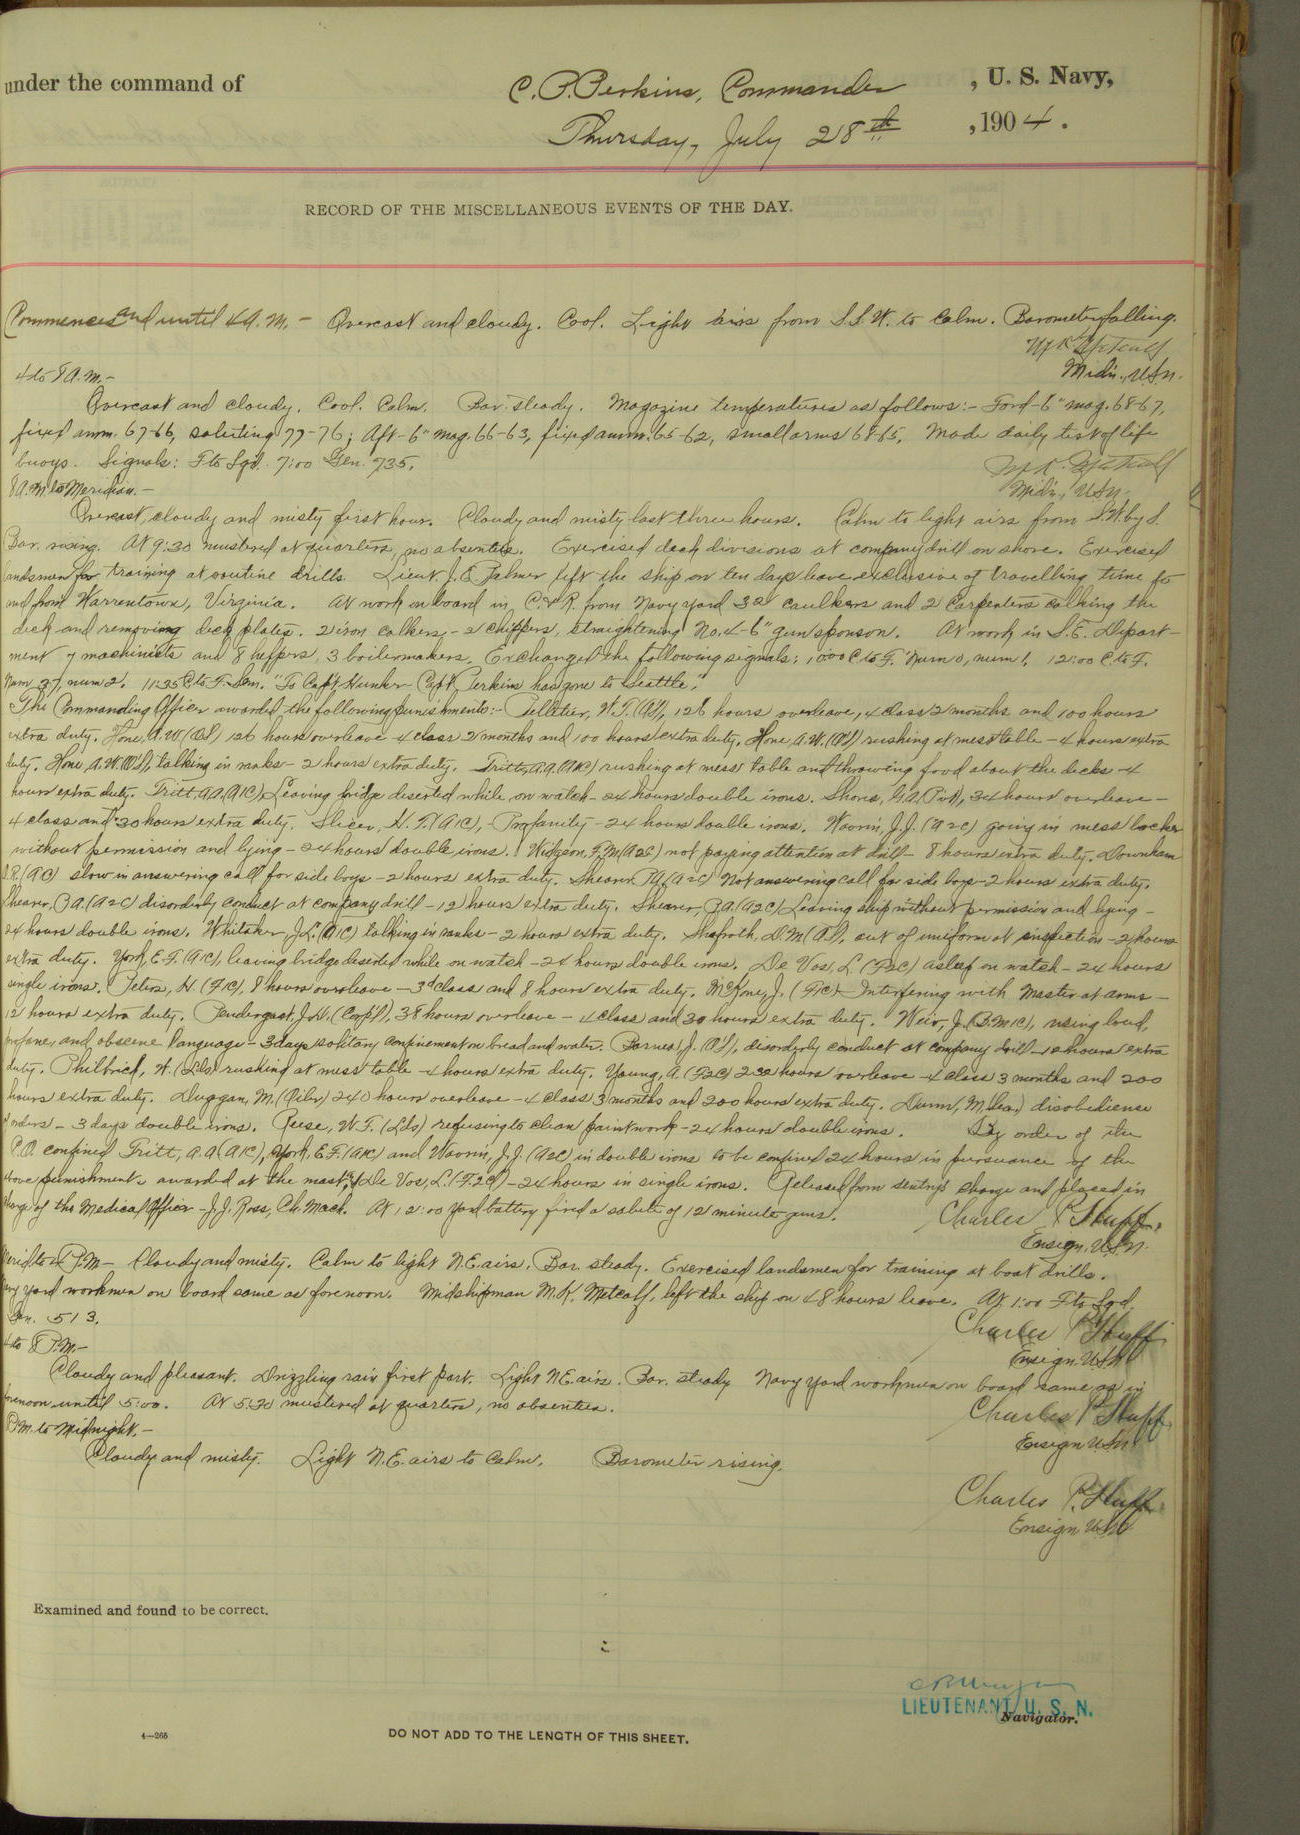 under the command of C. P. Perkins, Commander, U. S. Navy,
Thursday, July 28th, 1904.
RECORD OF THE MISCELLANEOUS EVENTS OF THE DAY.
Commences and until 4 A.M. - Overcast and cloudy. Cool. Light airs from S.S.W. to Calm. Barometer falling.
M K Metcalf
Midn., USN.
4 to 8 A.M.-
Overcast and cloudy. Cool. Calm. Bar. steady. Magazine temperatures as follows:- Ford-6" mag. 68-67,
fixed amm. 67-66, saluting 77-76; Aft-6" mag. 66-63, fixed amm. 65-62, small arms 68-65. Made daily test of life
buoys. Signals: F to Sqd. 7:00 Gen. 735.
M K. Metcalf
Midn., USN.
8 A.M. to Meridian.-
Overcast, cloudy and misty first hour. Cloudy and misty last three hours. Calm to light airs from S.W. by S.
Bar. rising. At 9:30 mustered at quarters, no absentees. Exercised deck divisions at company drill on shore. Exercised
landsmen for training at routine drills. Lieut. J. E. Palmer left the ship on ten days leave exclusive of travelling time to
and from Warrentown, Virginia. At work on board in C.&R. from Navy Yard 32 caulkers and 2 Carpenters calking the
deck and removing deck plates. 2 iron calkers, - 2 chippers, straightening No. 4-6" gun sponson. At work in S.E. Depart-
ment 7 machinists and 8 helpers, 3 boilermakers. Exchanged the following signals: 10:00 C to F. Num 0, num 1. 12:00 C to F.
Num 37, num 2. 11:35 C to F. Sem. "To Capt. Hunker - Capt. Perkins has gone to Seattle."
The Commanding Officer awarded the following punishments:- Pelletier, W.T. (AS), 126 hours overleave, 4 class 2 months and 100 hours
extra duty. Hone, A.W. (OS) 126 hours overleave - 4 class 2 months and 100 hours extra duty. Hone, A.W. (OS) rushing at mess table - 4 hours extra
duty. Hone, A.W. (OS), talking in ranks - 2 hours extra duty. Tritt, A.A. (A1C) rushing at mess table and throwing food about the decks - 4
hours extra duty. Tritt, A.A. (A1C), Leaving bridge deserted while on watch - 24 hours double irons. Shores, G.A. (Pvt), 34 hours overleave -
4 class and 30 hours extra duty. Slicer, H.T. (A1C), - Profanity - 24 hours double irons. Woorin, J.J. (A2C) going in mess locker
without permission and lying - 24 hours double irons. Widgeon, F.M. (A2C) not paying attention at drill - 8 hours extra duty. Downham
slow in answering call for side boys - 2 hours extra duty. Shearer, P.A. (A2C) Not answering call for side boys - 2 hours extra duty.
Shearer, P.A. (A2C) disorderly conduct at company drill - 12 hours extra duty. Shearer, P.A. (A2C) Leaving ship without permission and lying -
24 hours double irons. Whitaker, J.L. (A1C) talking in ranks - 2 hours extra duty. Shafroth, D.M. (AS), out of uniform at inspection - 2 hours
extra duty. York, E.F. (A1C), leaving bridge deserted while on watch - 24 hours double irons. De Vos, L. (F2C) asleep on watch - 24 hours
single irons. Peters, H. (F1C), 8 hours overleave - 3d class and 8 hours extra duty. McKone, J. (F1C) - Interfering with Master at arms -
12 hours extra duty. Pendergast, J.H. (Corp'l), 38 hours overleave - 4 class and 30 hours extra duty. Weir, J. (B.M.1C), using loud,
profane, and obscene language - 3 days solitary confinement on bread and water. Barnes, J. (OS), disorderly conduct at company drill - 12 hours extra
duty. Philbrick, W. (Lds) rushing at mess table - 4 hours extra duty. Young, A. (F2C) 232 hours overleave - 4 class 3 months and 200
hours extra duty. Duggan, M. (Oiler) 240 hours overleave - 4 class 3 months and 200 hours extra duty. Dunn, M. (Sea) disobedience
of orders - 3 days double irons. Reese, W.F. (Lds) refusing to clean paint work - 24 hours double irons. By order of the
C.O. confined Tritt, A.A. (A1C), York, E.F. (A1C) and Woorin, J.J. (A2C) in double irons to be confined 24 hours in pursuance of the
above punishments awarded at the mast, & De Vos, L. (F2C) - 24 hours in single irons. Released from sentry's charge and placed in
charge of the Medical Officer - J.J. Ross, Ch. Mach. At 12:00 yard battery fired a salute of 12 minute guns.
Charles P. Huff,
Ensign, USN.
Merid to 4 P.M. - Cloudy and misty. Calm to light N.E. airs. Bar. steady. Exercised landsmen for training at boat drills.
Navy yard workmen on board same as forenoon. Midshipman M.K. Metcalf, left the ship on 48 hours leave. At 1:00 F to Sqd.
Gen. 513.
Charles P. Huff
Ensign USN
4 to 8 P.M.-
Cloudy and pleasant. Drizzling rain first part. Light N.E. airs. Bar. steady Navy Yard workmen on board same as in
forenoon until 5:00. At 5:30 mustered at quarters, no absentees.
Charles P. Huff
Ensign USN
P.M. to Midnight.-
Cloudy and misty. Light N.E. airs to Calm. Barometer rising.
Charles P. Huff
Ensign USN
Examined and found to be correct.
LIEUTENANT, U. S. N.
Navigator.
4-265
DO NOT ADD TO THE LENGTH OF THIS SHEET.